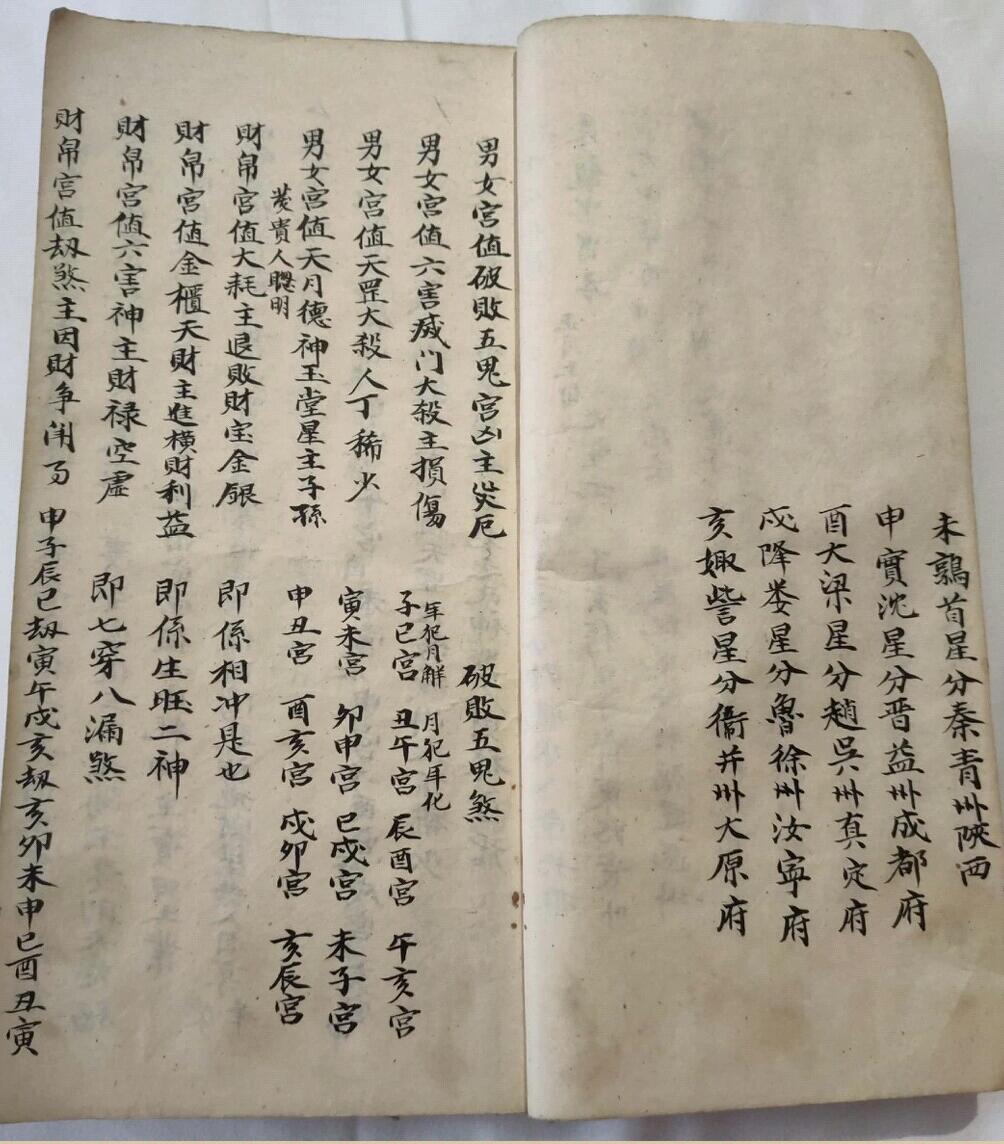 未鶉首星分秦青州陝西
申實沈星分晋益州成都府
酉大梁星分趙吳州真定府
戍降娄星分魯徐州汝寧府
亥娵訾星分衞并州大原府
男女宮值破敗五鬼宮凶主災厄
破敗五鬼煞
男女宮值六害滅门大殺主損傷
年犯月解 月犯年化
子巳宮 丑午宮 辰酉宮 午亥宮
男女宮值天罡大殺人丁稀少
寅未宮 卯申宮 巳戍宮 未子宮
男女宮值天月德神玉堂星主子孫
發貴人聰明
申丑宮 酉亥宮 戍卯宮 亥辰宮
財帛宮值大耗主退敗財宝金銀
即係相冲是也
財帛宮值金櫃天財主進橫財利益
即係生旺二神
財帛宮值六害神主財禄空虛
即七穿八漏煞
財帛宮值劫煞主因財争闹
申子辰巳劫寅午戍亥劫亥卯未申巳酉丑寅